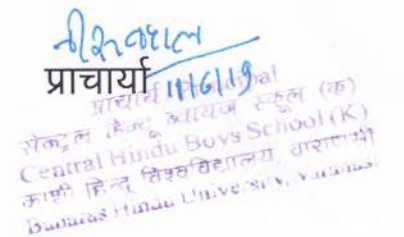 प्राचार्या 11/6/19
प्राचार्य / Principal
सेन्ट्रल हिन्दू ब्वायज स्कूल (क)
Central Hindu Boys School (K)
काशी हिन्दू विश्वविद्यालय, वाराणसी
Banaras Hindu University, Varanasi